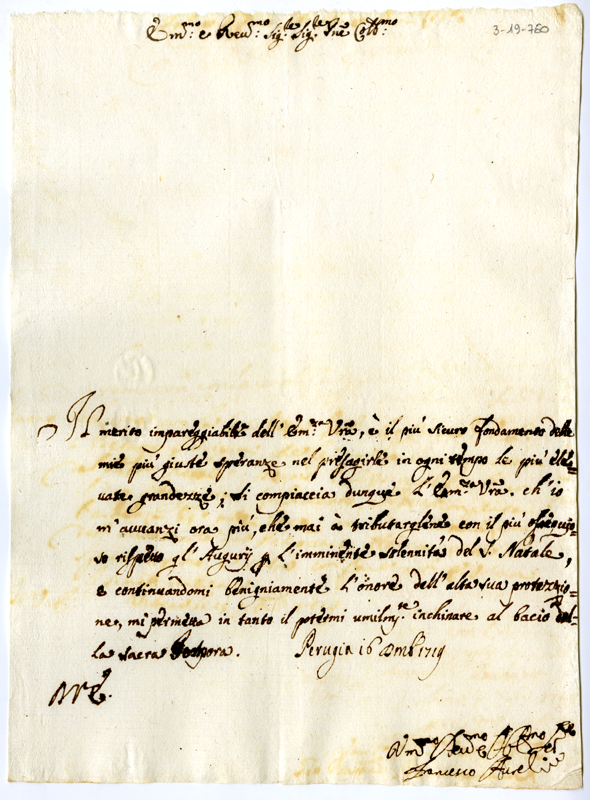 Em.mo e Reu.mo Sig.re Sig.re Pne Col.mo
3-19-760
Il merito impareggiabile dell'Em.za Vra, è il più sicuro fondamento delle
mie più giuste speranze nel presagirle in ogni tempo le più elle=
vate grandezze; si compiaccia dunque l'Em.za Vra. ch'io
m'auuanzi ora più, che mai à tributarglene con il più ossequio=
so rispetto gl'Augurij p l'imminente solennità del S. Natale,
e continuandomi benignamente l'onore dell'alta sua protezzio=
ne, mi permetta in tanto il potermi umilm.te inchinare al bacio del=
la sacra Porpora. Perugia 16 Dmbr 1719
Vm.mo
Francesco Aureli